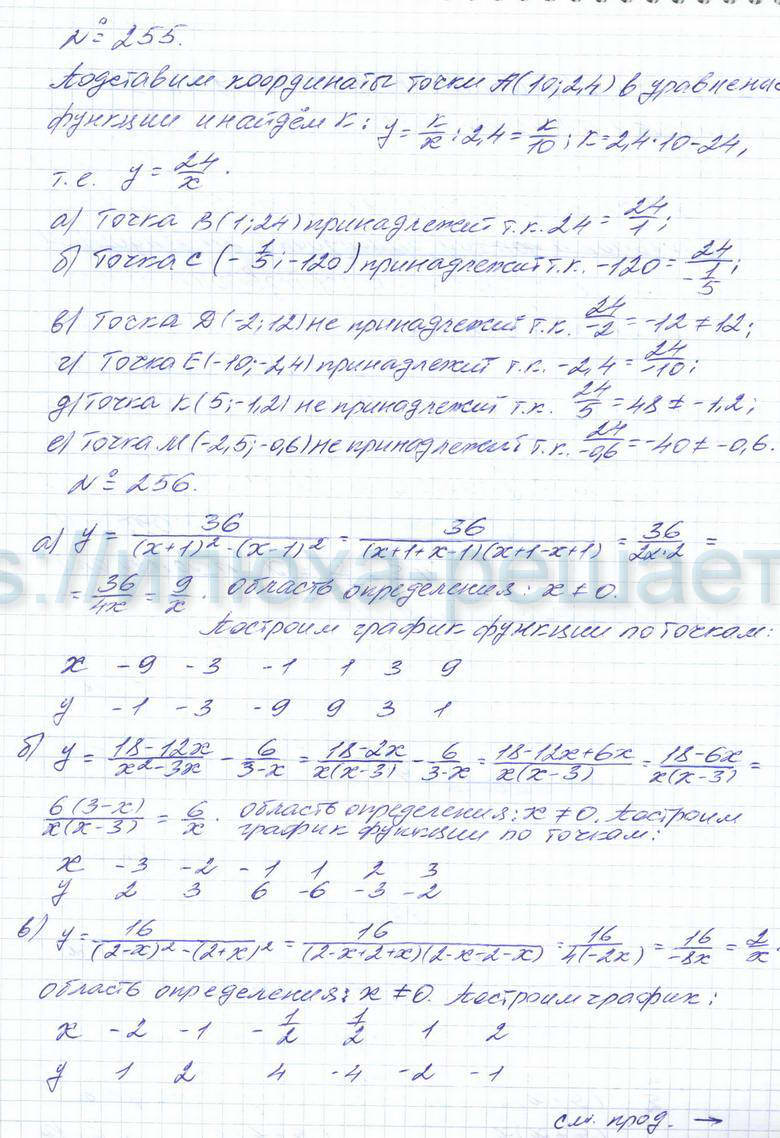 № 255.
Подставим координаты точки А(10; 2,4) в уравнение
функции и найдём к: y = к/x; 2,4 = к/10; к = 2,4·10 = 24,
т.е. y = 24/x.
а) Точка В(1; 24) принадлежит т.к. 24 = 24/1;
б) Точка С (-1/5; -120) принадлежит т.к. -120 = 24/-1/5;
в) Точка D(-2; 12) не принадлежит т.к. 24/-2 = -12 ≠ 12;
г) Точка Е(-10; -2,4) принадлежит т.к. -2,4 = 24/-10;
д) Точка К(5; -1,2) не принадлежит т.к. 24/5 = 48 ≠ -1,2;
е) Точка М(-2,5; -0,6) не принадлежит т.к. 24/-0,6 = -40 ≠ -0,6.
№ 256.
а) y = 36/(x+1)² - (x-1)² = 36/(x+1+x-1)(x+1-x+1) = 36/2x·2 =
= 36/4x = 9/x. область определения: x ≠ 0.
s://илюха-решает
Построим график функции по точкам:
x -9 -3 -1 1 3 9
y -1 -3 -9 9 3 1
б) y = 18-12x/x²-3x - 6/3-x = 18-2x/x(x-3) - 6/3-x = 18-12x+6x/x(x-3) = 18-6x/x(x-3) =
6(3-x)/x(x-3) = 6/x. область определения: x ≠ 0. Построим
график функции по точкам:
x -3 -2 -1 1 2 3
y 2 3 6 -6 -3 -2
в) y = 16/(2-x)² - (2+x)² = 16/(2-x+2+x)(2-x-2-x) = 16/4(-2x) = 16/-8x = 2/x.
область определения: x ≠ 0. Построим график:
x -2 -1 -1/2 1/2 1 2
y 1 2 4 -4 -2 -1
см. прод. →